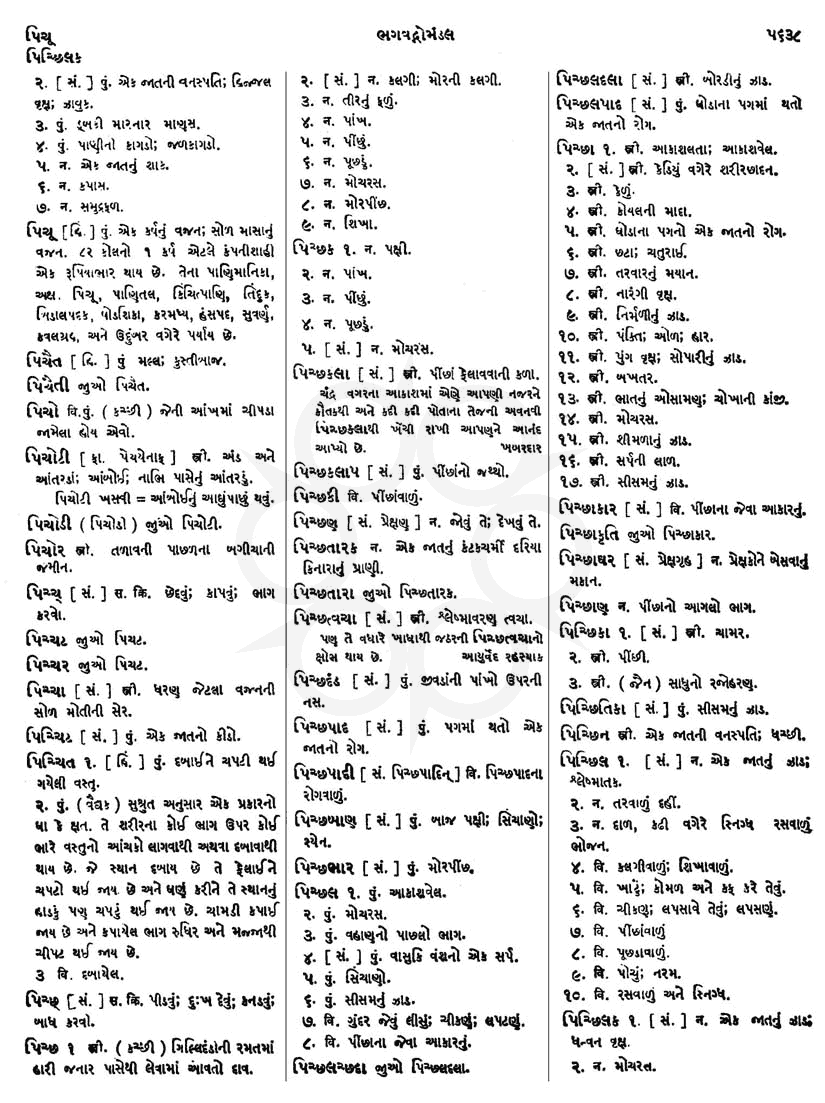 પિચૂ
પિચ્છિલક
ભગવદ્ગોમંડલ
૫૬૩૮
૨. [ સં. ] પું. એક જાતની વનસ્પતિ; હિજ્જલ
વૃક્ષ; ઝાવુક.
૩. પું. ડૂબકી મારનાર માણસ.
૪. પું. પાણીનો કાગડો; જળકાગડો.
૫. ન. એક જાતનું શાક.
૬. ન. કપાસ.
૭. ન. સમુદ્રફળ.
પિચૂ [ હિં. ] પું. એક કર્ષનું વજન; સોળ માસાનું
વજન. ૮૨ કોલનો ૧ કર્ષ એટલે કંપનીશાહી
એક રૂપિયાભાર થાય છે. તેના પાણિમાનિકા,
અક્ષ. પિચૂ, પાણિતલ, કિંચિત્પાણિ, તિંદુક,
બિડાલપદક, ષોડશિકા, કરમધ્ય, હંસપદ, સુવર્ણ,
કવલગ્રહ, અને ઉદુંબર વગેરે પર્યાય છે.
પિચૈત [ હિ. ] પું મલ્લ; કુસ્તીબાજ.
પિચૈતી જુઓ પિચૈત.
પિચો વિ.પું. ( કચ્છી ) જેની આંખમાં ચીપડા
જામેલા હોય એવો.
પિચોટી [ ફા. પેચચેનાફ ] સ્ત્રી. અંડ અને
આંતરડાં; આંબોઈ; નાભિ પાસેનું આંતરડું.
પિચોટી ખસવી = આંબોઈનું આઘુંપાછું થવું.
પિચોડી ( પિચોડો ) જુઓ પિચોટી.
પિચોર સ્ત્રી. તળાવની પાછળના બગીચાની
જમીન.
પિચ્ચ્ [ સં. ] સ. ક્રિ. છેદવું; કાપવું; ભાગ
કરવો.
પિચ્ચટ જુઓ પિચટ.
પિચ્ચર જુઓ પિચટ.
પિચ્ચા [ સં. ] સ્ત્રી. ધરણ જેટલા વજનની
સોળ મોતીની સેર.
પિચ્ચિટ [ સં. ] પું. એક જાતનો કીડો.
પિચ્ચિત ૧. [ હિં. ] પું. દબાઈને ચપટી થઈ
ગયેલી વસ્તુ.
૨. પું. ( વૈદ્યક ) સુશ્રુત અનુસાર એક પ્રકારનો
ઘા કે ક્ષત. તે શરીરના કોઈ ભાગ ઉપર કોઈ
ભારે વસ્તુનો આંચકો લાગવાથી અથવા દબાવાથી
થાય છે. જે સ્થાન દબાય છે તે ફેલાઈને
ચપટો થઈ જાય છે અને ઘણું કરીને તે સ્થાનનું
હાડકું પણ ચપટું થઈ જાય છે. ચામડી કપાઈ
જાય છે અને કપાયેલ ભાગ રુધિર અને મજ્જાથી
ચીપટ થઈ જાય છે.
૩ વિ. દબાયેલ.
પિચ્છ્ [ સં. ] સ. ક્રિ. પીડવું; દુઃખ દેવું; કનડવું;
બાધ કરવો.
પિચ્છ ૧ સ્ત્રી. ( કચ્છી ) ગિલ્લિદંડાની રમતમાં
હારી જનાર પાસેથી લેવામાં આવતો દાવ.
૨. [ સં. ] ન. કલગી; મોરની કલગી.
૩. ન. તીરનું ફળું.
૪. ન. પાંખ.
૫. ન. પીંછું.
૬. ન. પૂછડું.
૭. ન. મોચરસ.
૮. ન. મોરપીંછ.
૯. ન. શિખા.
પિચ્છક ૧. ન. પક્ષી.
૨. ન. પાંખ.
૩. ન. પીંછું.
૪. ન. પૂછડું.
૫. [ સં. ] ન. મોચરસ.
પિચ્છકલા [ સં. ] સ્ત્રી. પીંછાં ફેલાવવાની કળા.
ચંદ્ર વગરના આકાશમાં એણે આપણી નજરને
કૌતકથી અને કદી કદી પોતાના તેજની અવનવી
પિચ્છકલાથી ખેંચી રાખી આપણને આનંદ
આપ્યો છે. ખબરદાર
પિચ્છકલાપ [ સં. ] પું. પિંછાંનો જથ્થો.
પિચ્છકી વિ. પીંછાંવાળું.
પિચ્છણ [ સં. પ્રેક્ષણ ] ન. જોવું તે; દેખવું તે.
પિચ્છતારક ન. એક જાતનું કંટકચર્મી દરિયા
કિનારાનું પ્રાણી.
પિચ્છતારા જુઓ પિચ્છતારક.
પિચ્છત્વચા [ સં. ] સ્ત્રી. શ્લેષ્માવરણ ત્વચા.
પણ તે વધારે ખાધાથી જઠરની પિચ્છત્વચાનો
ક્ષોસ થાય છે. આયુર્વેદ રહસ્યાર્ક
પિચ્છદંડ [ સં. ] પું. જીવડાંની પાંખો ઉપરની
નસ.
પિચ્છપાદ [ સં. ] પું. પગમાં થતો એક
જાતનો રોગ.
પિચ્છપાદી [ સં. પિચ્છપાદિન્ ] વિ. પિચ્છપાદના
રોગવાળું.
પિચ્છબાણ [ સં. ] પું. બાજ પક્ષી; સિંચાણો;
શ્યેન.
પિચ્છભાર [ સં. ] પું. મોરપીંછ.
પિચ્છલ ૧. પું. આકાશવેલ.
૨. પું. મોચરસ.
૩. પું. વહાણનો પાછલો ભાગ.
૪. [ સં. ] પું. વાસુકિ વંશનો એક સર્પ.
૫. પું. સિંચાણો.
૬. પું. સીસમનું ઝાડ.
૭. વિ. ગુંદર જેવું લીસું; ચીકણું; લપટણું.
૮. વિ. પીંછાના જેવા આકારનું.
પિચ્છલચ્છદા જુઓ પિચ્છલદલા.
પિચ્છલદલા [ સં. ] સ્ત્રી. બોરડીનું ઝાડ.
પિચ્છલપાદ [ સં. ] પું. ઘોડાના પગમાં થતો
એક જાતનો રોગ.
પિચ્છા ૧. સ્ત્રી. આકાશલતા; આકાશવેલ.
૨. [ સં. ] સ્ત્રી. કેડિયું વગેરે શરીરછાદન.
૩. સ્ત્રી. કેળું.
૪. સ્ત્રી. કોયલની માદા.
૫. સ્ત્રી. ઘોડાના પગનો એક જાતનો રોગ.
૬. સ્ત્રી. છટા; ચતુરાઈ.
૭. સ્ત્રી. તરવારનું મયાન.
૮. સ્ત્રી. નારંગી વૃક્ષ.
૯. સ્ત્રી. નિર્મળીનું ઝાડ.
૧૦. સ્ત્રી. પંક્તિ; ઓળ; હાર.
૧૧. સ્ત્રી. પુંગ વૃક્ષ; સોપારીનું ઝાડ.
૧૨. સ્ત્રી. બખતર.
૧૩. સ્ત્રી. ભાતનું ઓસામણ; ચોખાની કાંજી.
૧૪. સ્ત્રી. મોચરસ.
૧૫. સ્ત્રી. શીમળાનું ઝાડ.
૧૬. સ્ત્રી. સર્પની લાળ.
૧૭. સ્ત્રી. સીસમનું ઝાડ.
પિચ્છાકાર [ સં. ] વિ. પીંછાના જેવા આકારનું.
પિચ્છાકૃતિ જુઓ પિચ્છાકાર.
પિચ્છાઘર [ સં. પ્રેક્ષગૃહ ] ન. પ્રેક્ષકોને બેસવાનું
મકાન.
પિચ્છાણ ન. પીંછાનો આગલો ભાગ.
પિચ્છિકા ૧. [ સં. ] સ્ત્રી. ચામર.
૨. સ્ત્રી. પીંછી.
૩. સ્ત્રી. ( જૈન ) સાધુનો રજોહરણ.
પિચ્છિતિકા [ સં. ] પું. સીસમનું ઝાડ.
પિચ્છિન સ્ત્રી. એક જાતની વનસ્પતિ; ધચ્છી.
પિચ્છિલ ૧. [ સં. ] ન. એક જાતનું ઝાડ;
શ્લેષ્માતક.
૨. ન. તરવાળું દહીં.
૩. ન. દાળ, કઢી વગેરે સ્નિગ્ધ રસવાળું
ભોજન.
૪. વિ. કલગીવાળું; શિખાવાળું.
૫. વિ. ખાટું; કોમળ અને કફ કરે તેવું.
૬. વિ. ચીકણું; લપસાવે તેવું; લપસણું.
૭. વિ. પીંછાંવાળું
૮. વિ. પૂછડાવાળું.
૯. વિ. પોચું; નરમ.
૧૦. વિ. રસવાળું અને સ્નિગ્ધ.
પિચ્છિલક ૧. [ સં. ] ન. એક જાતનું ઝાડ;
ધન્વન વૃક્ષ.
૨. ન. મોચરસ.